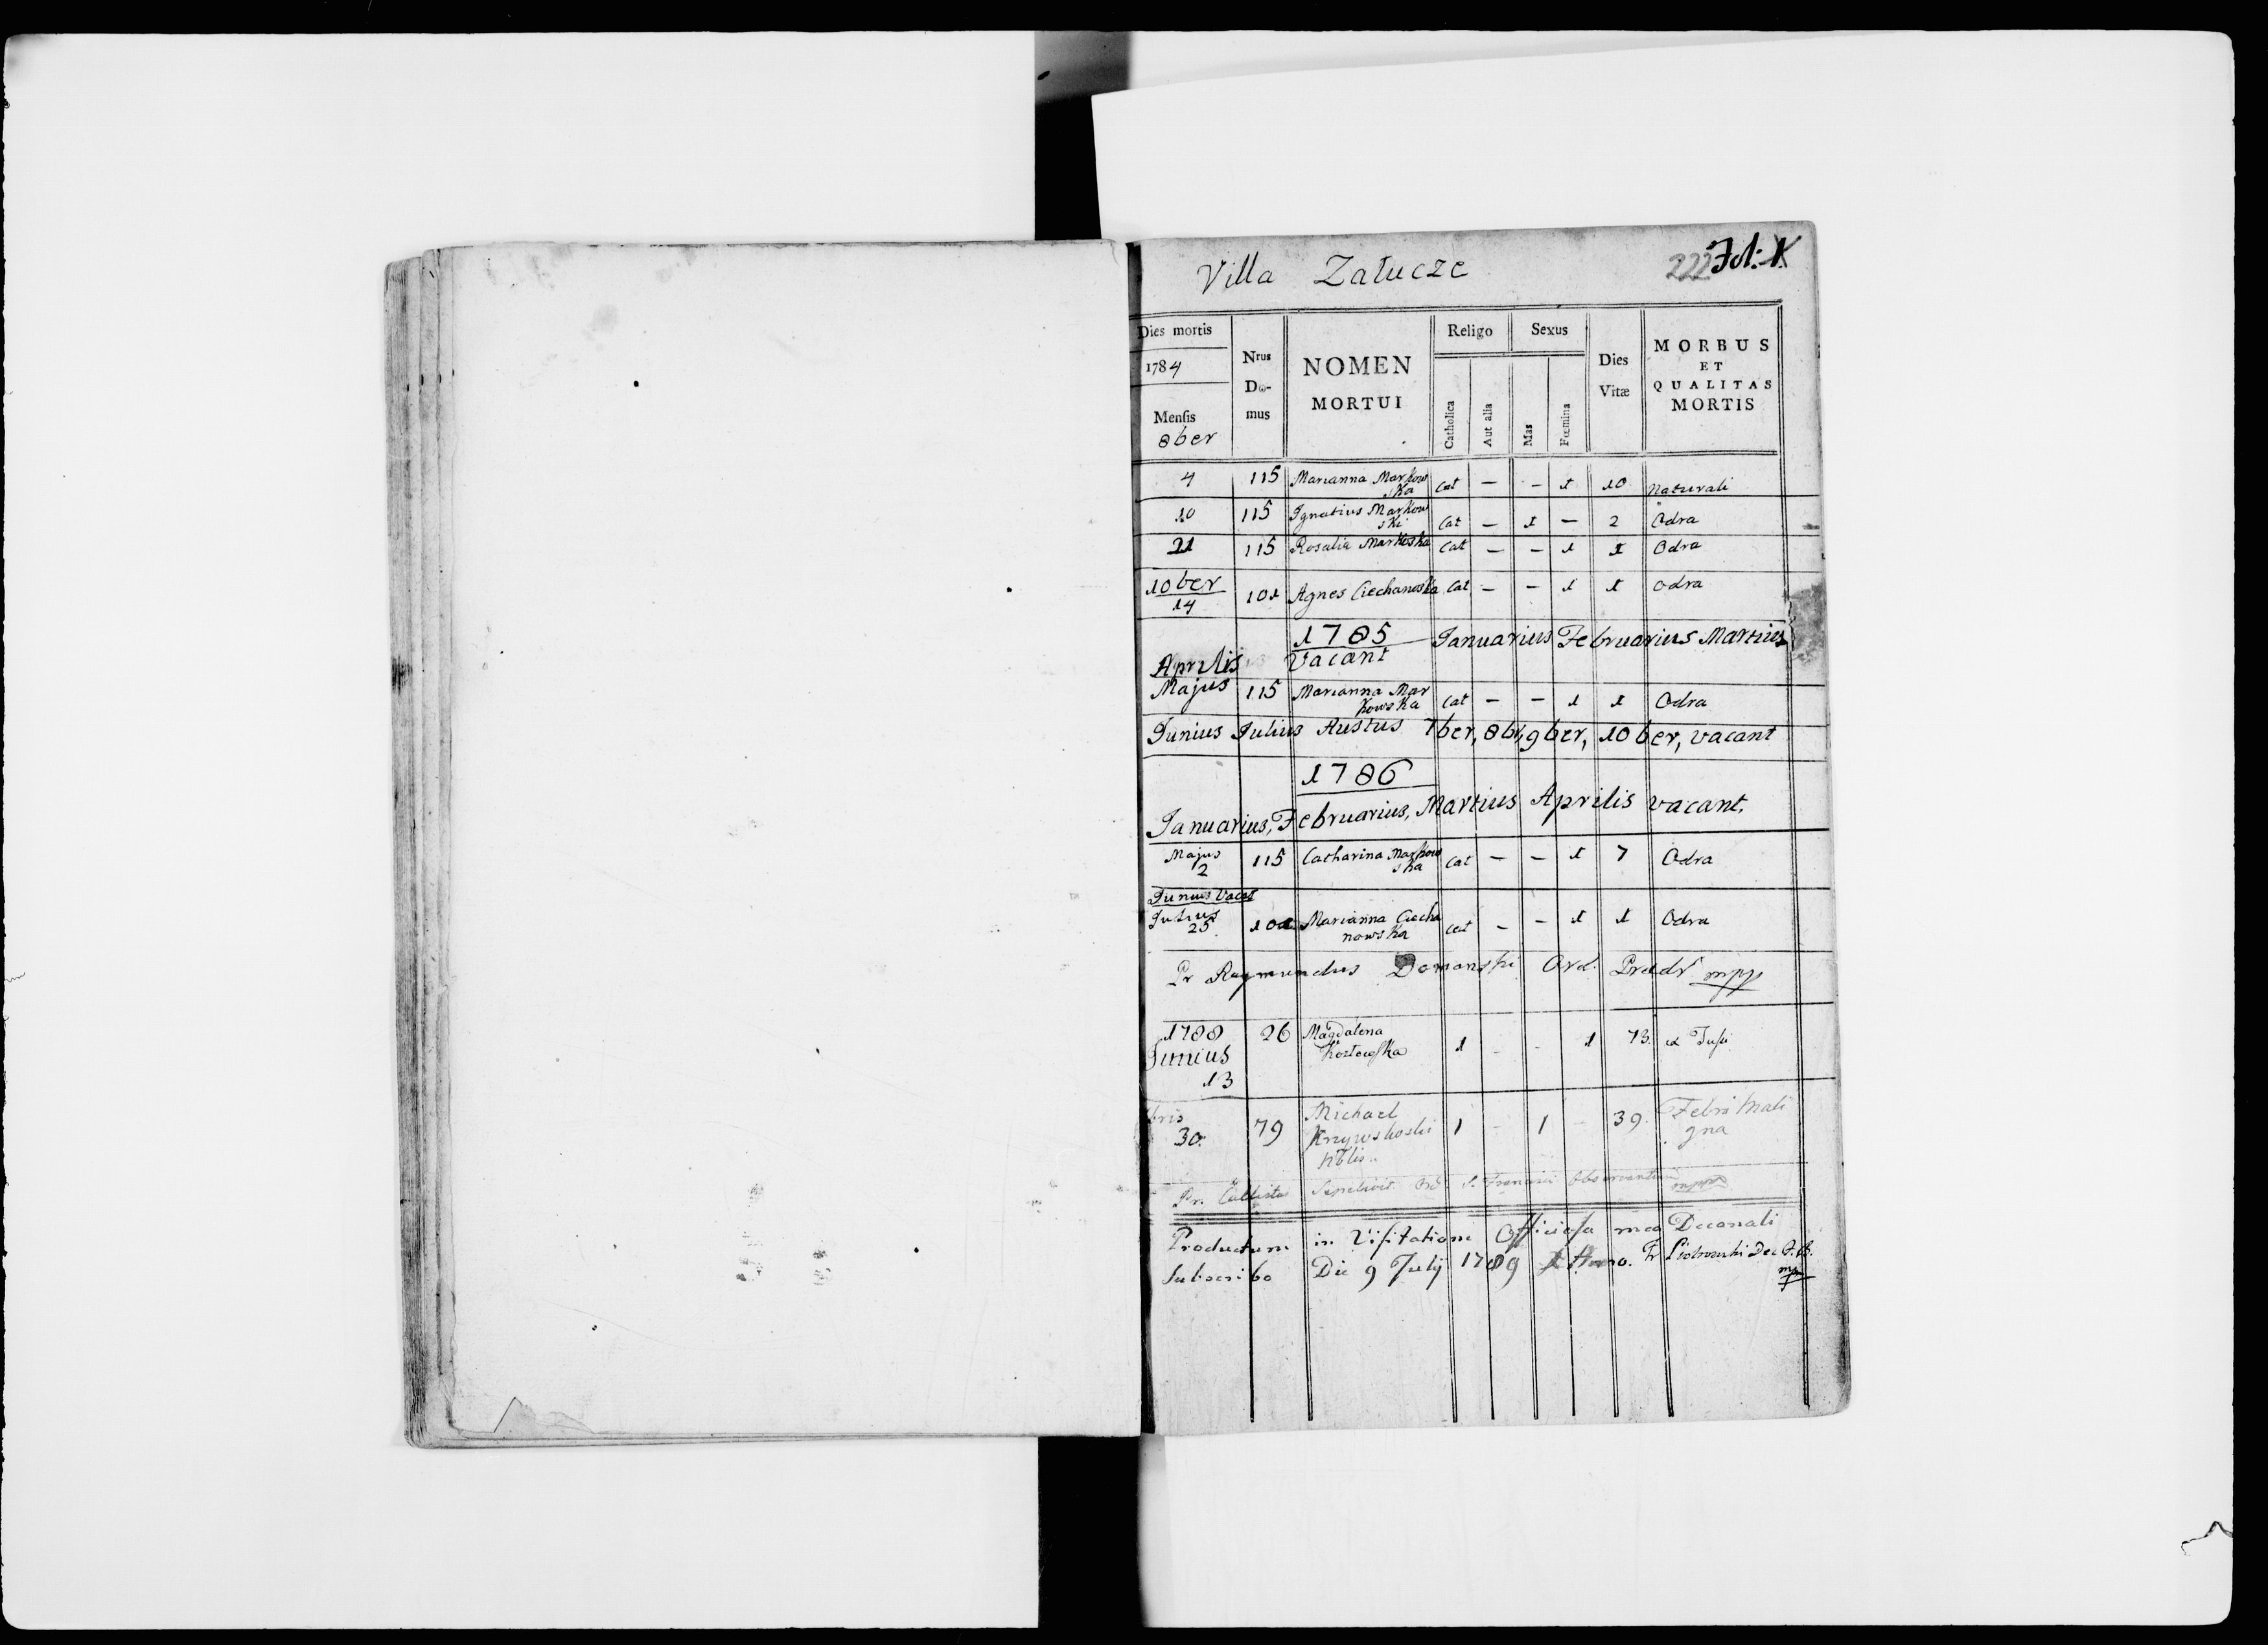 Villa Załucze
222 Fol: 1
Dies mortis
1784
Mensis
8ber
Nrus
Do-
mus
NOMEN
MORTUI
Religo
Catholica
Aut alia
Sexus
Mas
Fœmina
Dies
Vitæ
MORBUS
ET
QUALITAS
MORTIS
4 115 Marianna Markow
ska Cat – – 1 10 naturali
10 115 Ignatius Markow
ski Cat – 1 – 2 Odra
21 115 Rosalia Markoska Cat – – 1 1 Odra
10ber
14 101 Agnes Ciechanoska Cat – – 1 1 Odra
1785 Januarius Februarius Martius
Aprilis vacant
Majus 115 Marianna Mar
kowska Cat – – 1 1 Odra
Junius Julius Austus 7ber, 8br, 9ber, 10ber, vacant
1786
Januarius, Februarius, Martius Aprilis vacant.
Majus
2 115 Catharina Markow
ska Cat – – 1 7 Odra
Junius Vacat
Julius
25 Marianna Ciecha
nowska Cat – – 1 1 Odra
Pr Raymundus Domanski Ord. mpp
1788 26 Magdalena
Junius Kozłowska 1 - - 1 73.
13
bris 79 Michael
30. 1 - 1 - 39. Febri Mali
gna
Pr. Sepelivit Ord. S. Francisci
Productum in Visitatione Officiosa mea Decanali
Subscribo Die 9 July 1789 Anno. Fr Piotrowski Dec
mp